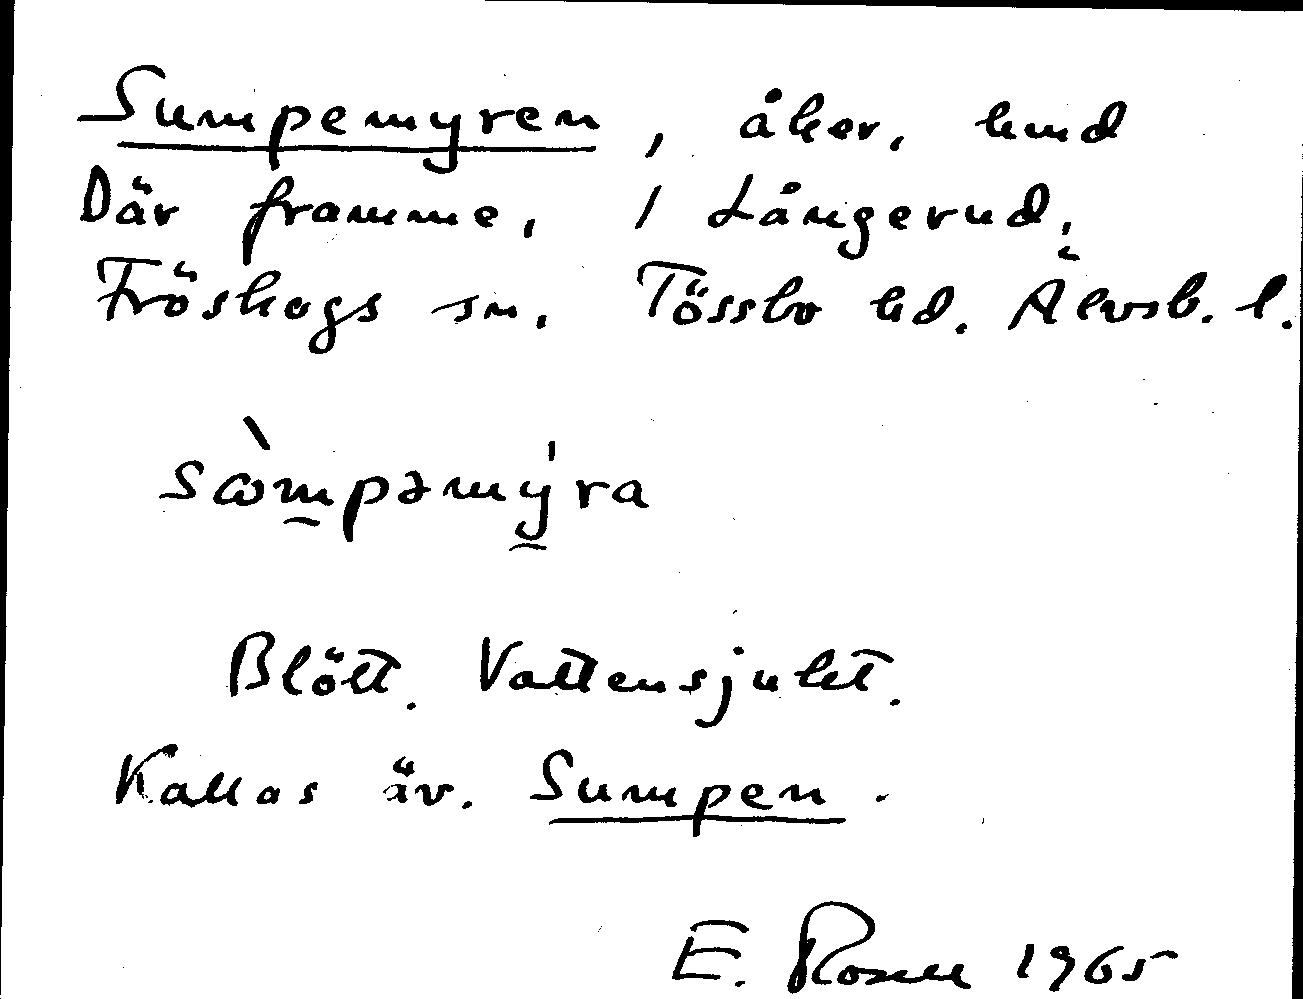 Sumpemyren, åker, hmd
Där framme, 1 Långerud,
Fröskogs sn. Tössbo hd. Älvsb. l.
sɷ̀mpəmy̍ra
Blött. Vattensjukt.
Kallas äv. Sumpen.
E. Rosell 1965